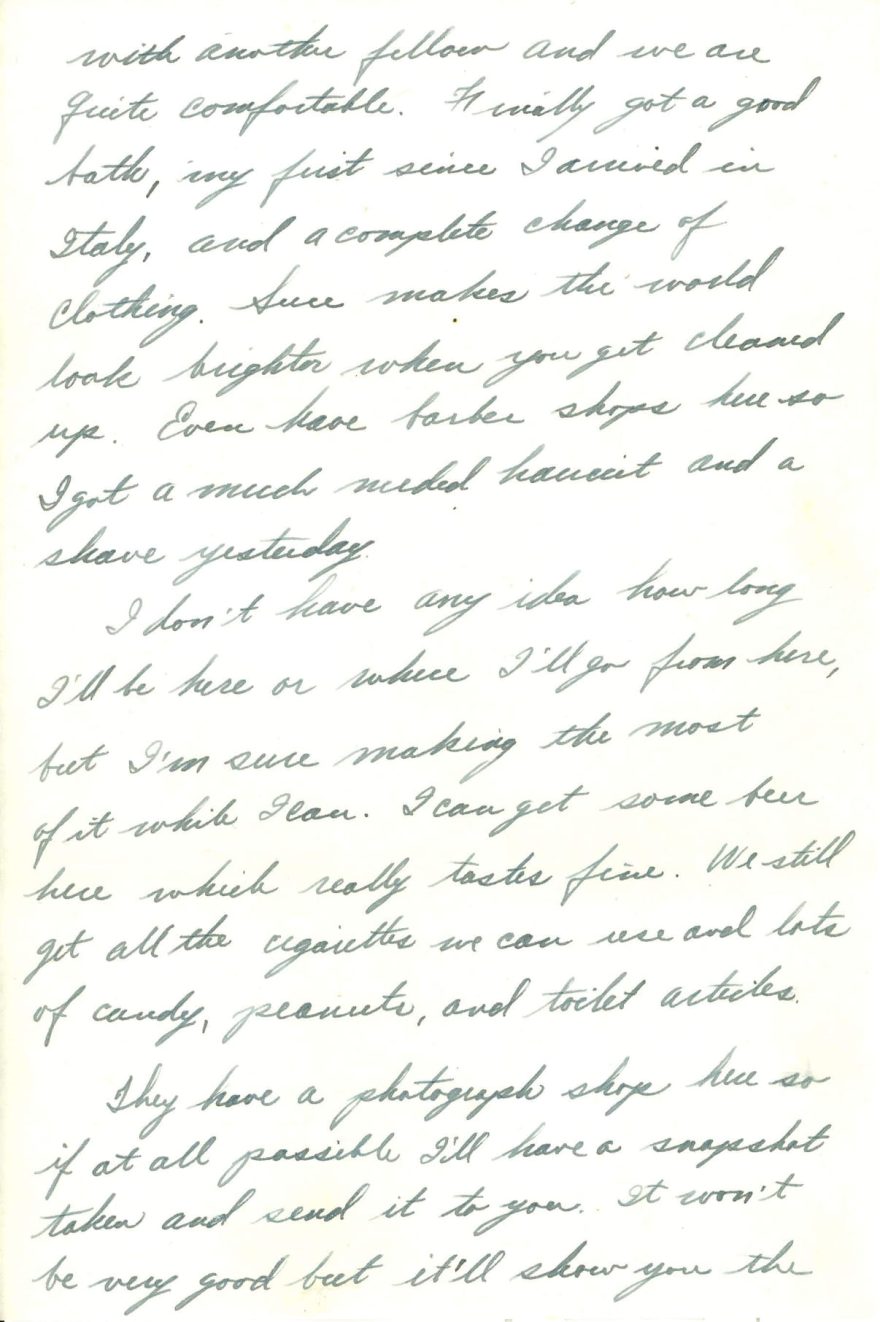 with another fellow and we are
quite comfortable. Finally got a good
bath, my first since I arrived in
Italy, and a complete change of
clothing. Sure makes the world
look brighter when you get cleaned
up. Even have barber shops here so
I got a much needed haircut and a
shave yesterday.
I don't have any idea how long
I'll be here or where I'll go from here,
but I'm sure making the most
of it while I can. I can get some beer
here which really tastes fine. We still
get all the cigarettes we can use and lots
of candy, peanuts, and toilet articles.
They have a photograph shop here so
if at all possible I'll have a snapshot
taken and send it to you. It won't
be very good but it'll show you the